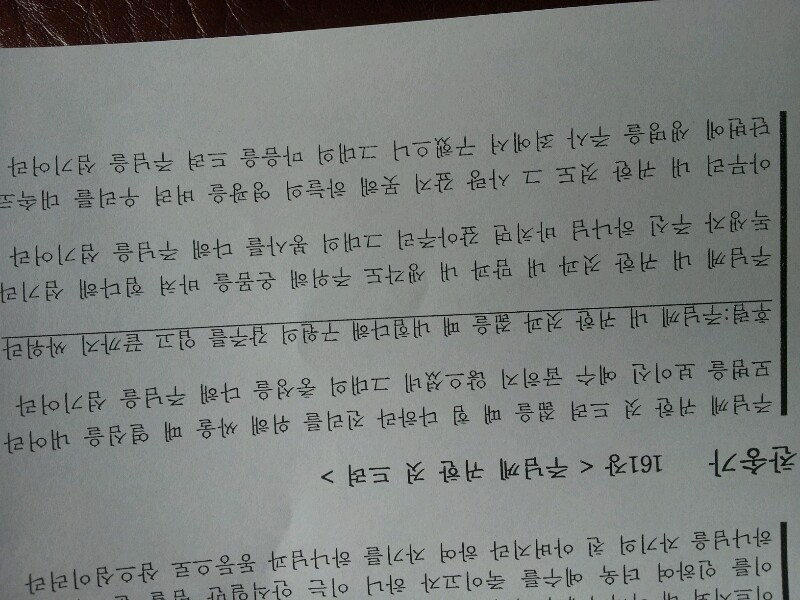 이르시되 내
이를 인하여 더욱 예수를 죽이고자 하니 이는 안식일만 범할
하나님을 자기의 친 아버지라 하여 자기를 하나님과 동등으로 삼으심이러라
찬송가 161장 < 주님께 귀한 것 드려 >
주님께 귀한 것 드려 젊을 때 힘 다하라 진리를 위해 싸울 때 열심을 내어라
모범을 보이신 예수 굽히지 않으셨네 그대의 충성을 다해 주님을 섬기어라
후렴:주님께 내 귀한 것과 젊을 때 내힘다해 구원의 갑주를 입고 끝까지 싸워라
주님께 내 귀한 것과 내 맘과 내 생각도 주위해 온몸을 바쳐 힘다해 섬기라
독생자 주신 하나님 바치면 갚아주리 그대의 봉사를 다해 주님을 섬기어라
아무리 내 귀한 것도 그 사랑 갚지 못해 하늘의 영광을 버려 우리를 대속
단번에 생명을 주사 죄에서 구했으니 그대의 마음을 드려 주님을 섬기어라